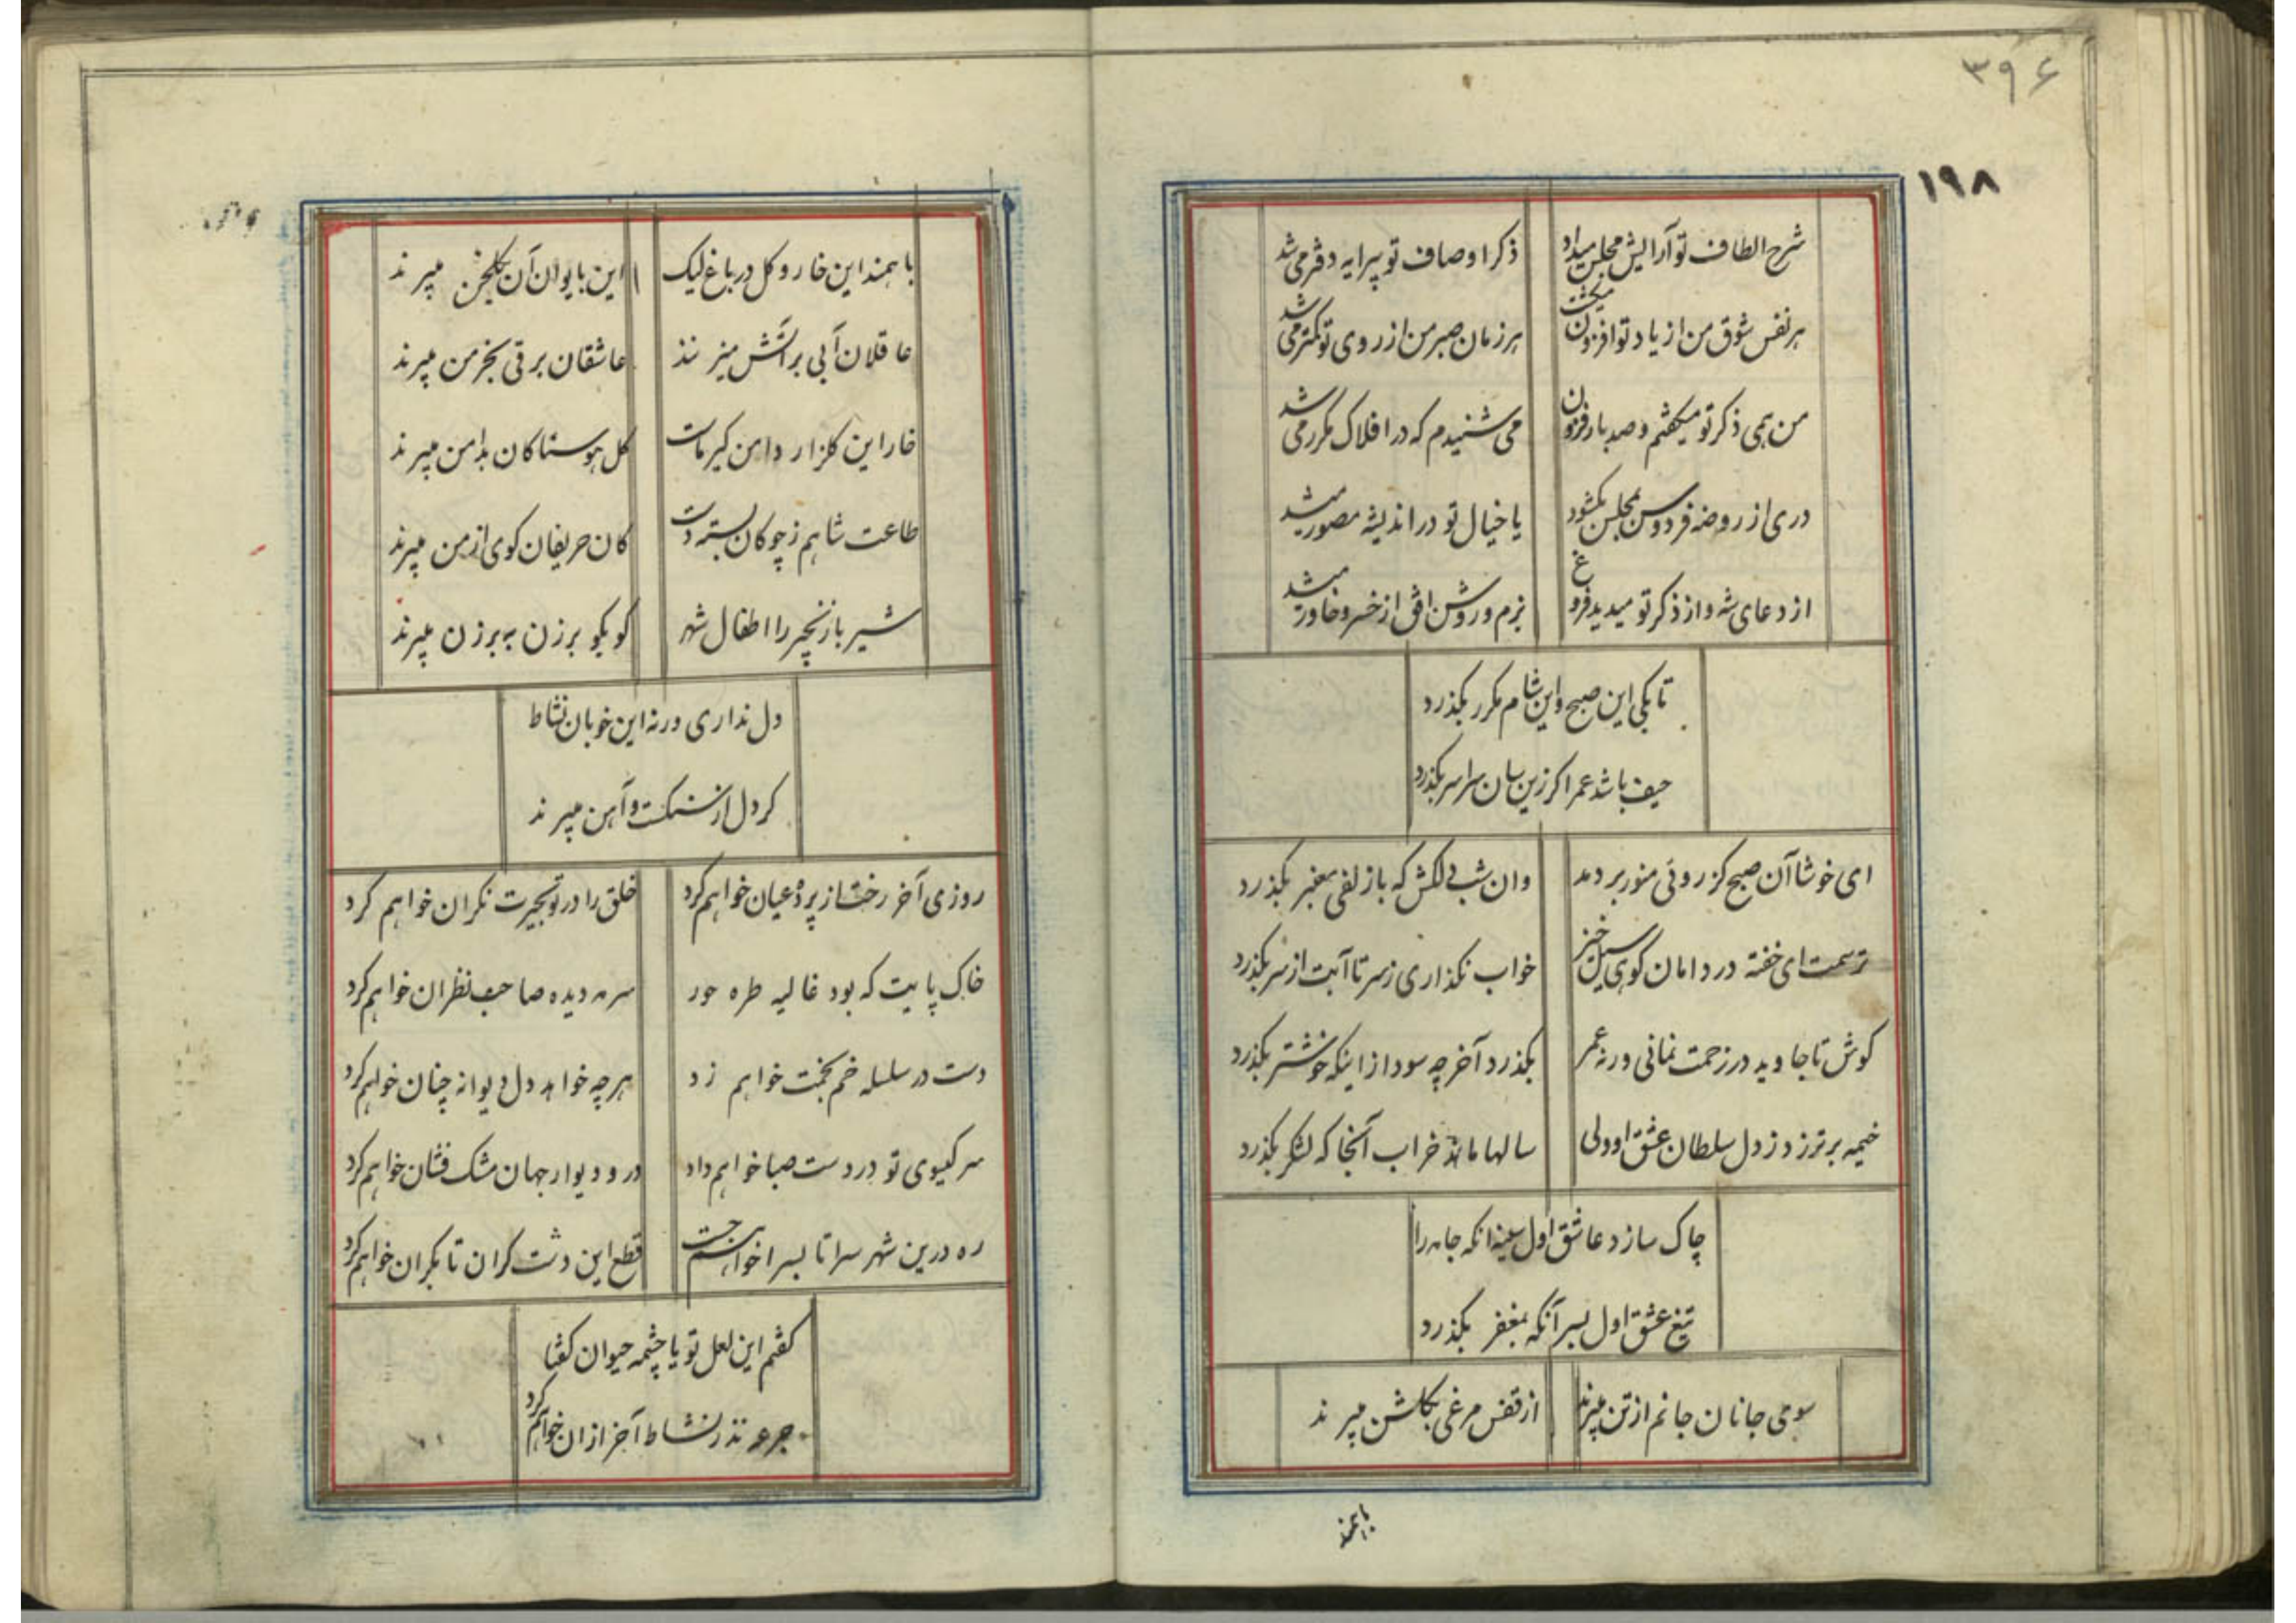 ۳۹۶
۱۹۸
شرح الطاف تو آرایش مجلس میداد ذکر اوصاف تو پیرایه دفتر می شد
هر نفس شوق من از یاد تو افزون میگشت هر زمان صبر من از روی تو کمتر می شد
من همی ذکر تو میکفتم و صد بار فزون می شنیدم که در افلاک مکرر می شد
دری از روضه فردوس بمجلس بکشود یا خیال تو در اندیشه مصور میشد
از دعای شه و از ذکر تو میدید فروغ بزم و روشن افق از خسرو خاور میشد
تا بکی این صبح و این شام مکرر بکذرد
حیف باشد عمر اکر زین سان سراسر بکذرد
ای خوشا آن صبح کز روئی منور بردمد وان شب دلکش که با زلفی معنبر بکذرد
ترسمت ای خفته در دامان کوی سیل خیز خواب نکذاری ز سر تا آبت از سر بکذرد
کوش تا جاوید در زحمت نمانی ورنه عمر بکذرد آخر چه سود از اینکه خوشتر بکذرد
خیمه برتر زد ز دل سلطان عشق او ولی سالها ماند خراب آنجا که لشکر بکذرد
چاک سازد عاشق اول سینه انکه جامه را
تیغ عشق اول بسر آنکه بمغفر بکذرد
سوی جانان جانم از تن میبرند از قفس مرغی بکلشن میبرند
باهمند
باهمند این خار و کل در باغ لیک این بایوان آن بکلخن میبرند
عاقلان آبی بر آتش میزنند عاشقان برقی بخرمن میبرند
خار این کلزار دامن کیر ماست کل هوسناکان بدامن میبرند
طاعت شاهم ز چوکان بسته دست کان حریفان کوی از من میبرند
شیر با زنجیر را اطفال شهر کو بکو برزن به برزن میبرند
دل نداری ورنه این خوبان نشاط
کر دل از سنکست و آهن میبرند
روزی آخر رخت از پرده عیان خواهم کرد خلق را در تو بحیرت نکران خواهم کرد
خاک پایت که بود غالیه طره حور سرمه دیده صاحب نظران خواهم کرد
دست در سلسله خم بخمت خواهم زد هر چه خواهد دل دیوانه چنان خواهم کرد
سر کیسوی تو در دست صبا خواهم داد در و دیوار جهان مشک فشان خواهم کرد
ره درین شهر سرا تا بسرا خواهم جست قطع این دشت کران تا بکران خواهم کرد
کفتم این لعل تو یا چشمه حیوان کفتا
جرعه نذر نشاط آخر ازان خواهم کرد